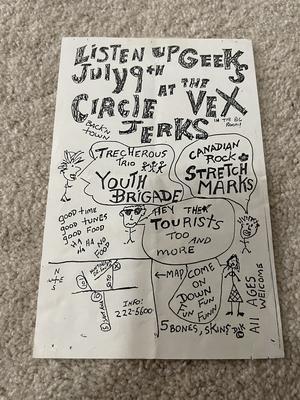 LISTEN UP GEEKS
JULY 9TH AT THE VEX
IN THE BIG ROOM!
CIRCLE JERKS
BACK'N TOWN
TRECHEROUS
TRIO
YOUTH
BRIGADE
CANADIAN
ROCK
STRETCH
MARKS
GOOD TIME
GOOD TUNES
GOOD FOOD
HA HA NO
HA HA FOOD
HEY THE
TOURISTS
TOO AND
MORE
N
W E
S
←MAP
COME
ON
DOWN
FUN
FUN
FUN FUNN
INFO:
222-5600
5 BONES, SKINS OK
ALL AGES
WELCOME